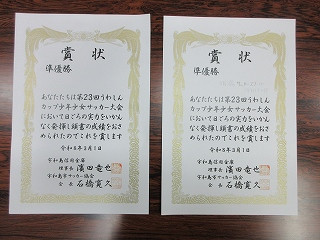 賞状
準優勝
あなたたちは第23回うわしん
カップ少年少女サッカー大会
において日ごろの実力をいかん
なく発揮し頭書の成績をおさ
められたのでこれを賞します
令和6年3月1日
宇和島信用金庫
理事長 濵田竜也
宇和島市サッカー協会
会長 石橋寛久
賞状
準優勝
あなたたちは第23回うわしん
カップ少年少女サッカー大会
において日ごろの実力をいかん
なく発揮し頭書の成績をおさ
められたのでこれを賞します
令和6年3月1日
宇和島信用金庫
理事長 濵田竜也
宇和島市サッカー協会
会長 石橋寛久